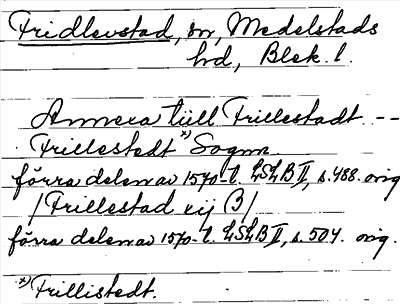 Fridlevstad, sn, Medelstads
hd, Blek. l.
Annexa tiill Frillestadt --
Frillestedt *) Sognn
förra delen av 1570-t. LSLB II, s. 488. orig
/Frillestad eij (3/
förra delen av 1570-t. LSLB II, s. 504. orig.
*) Frillistedt.